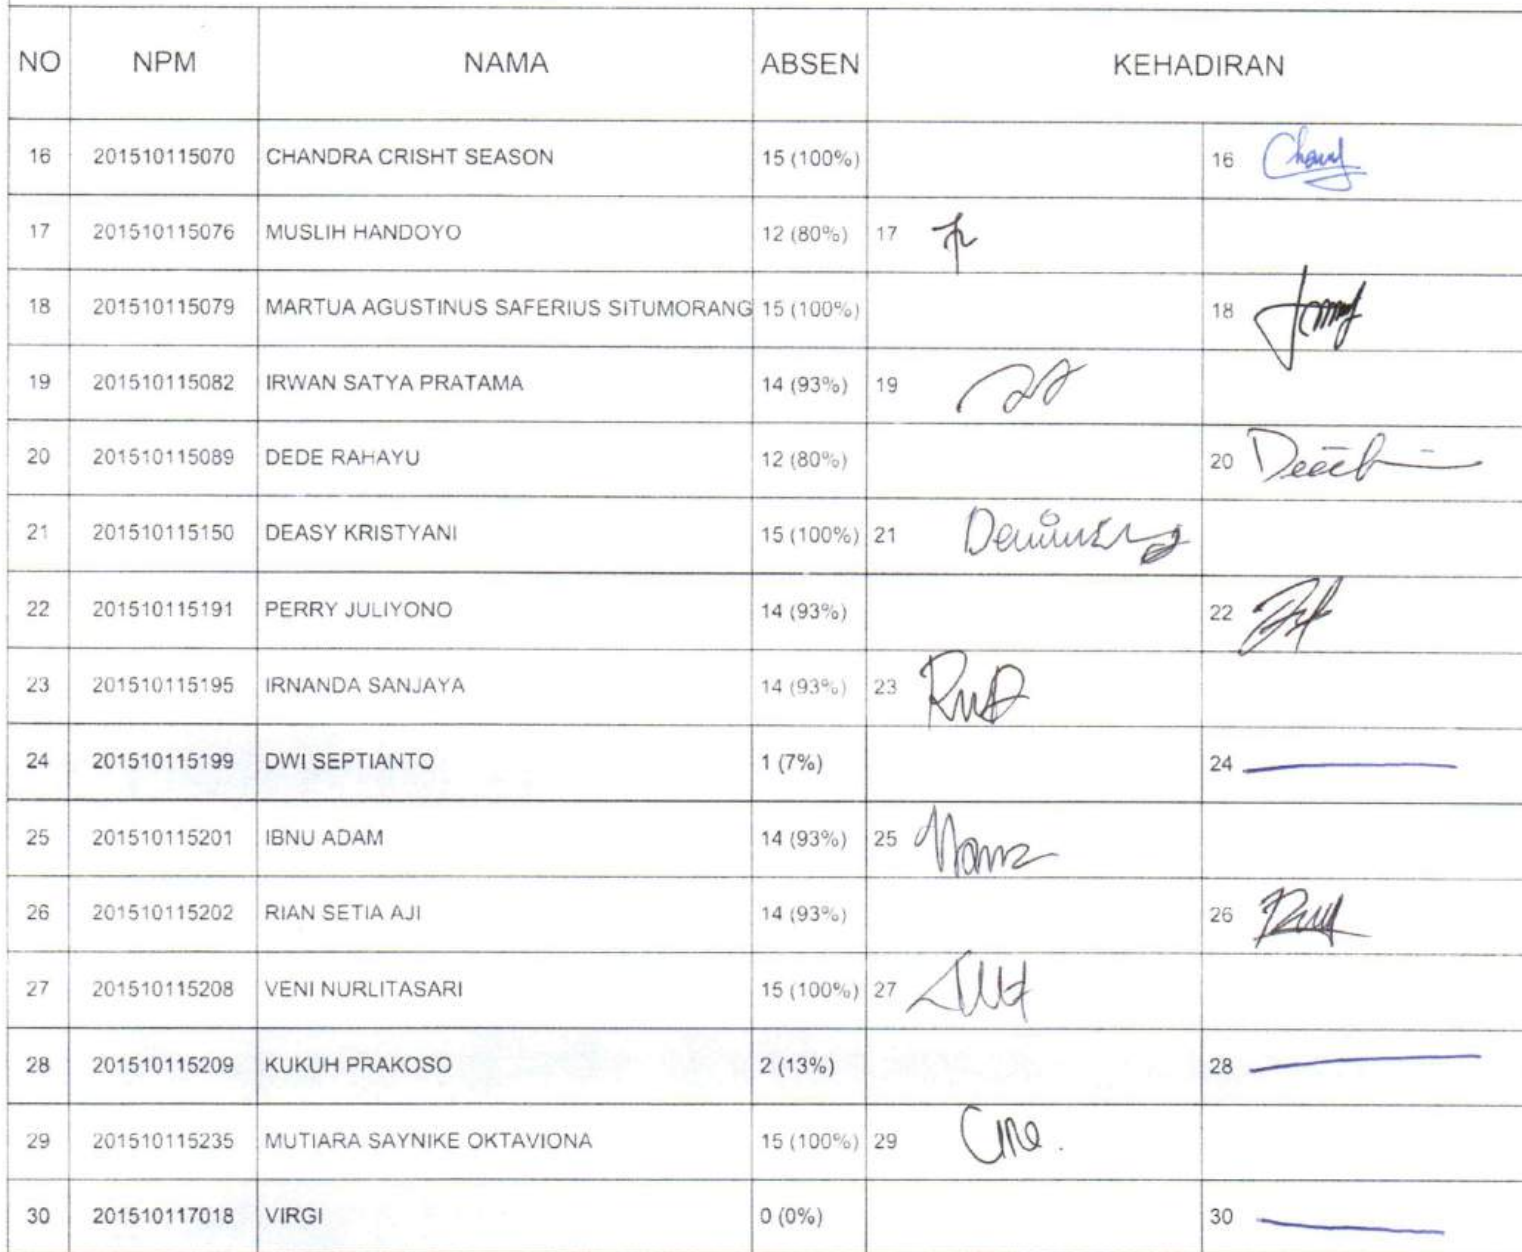 NO NPM NAMA ABSEN KEHADIRAN
16 201510115070 CHANDRA CRISHT SEASON 15 (100%) 16
17 201510115076 MUSLIH HANDOYO 12 (80%) 17
18 201510115079 MARTUA AGUSTINUS SAFERIUS SITUMORANG 15 (100%) 18
19 201510115082 IRWAN SATYA PRATAMA 14 (93%) 19
20 201510115089 DEDE RAHAYU 12 (80%) 20
21 201510115150 DEASY KRISTYANI 15 (100%) 21
22 201510115191 PERRY JULIYONO 14 (93%) 22
23 201510115195 IRNANDA SANJAYA 14 (93%) 23
24 201510115199 DWI SEPTIANTO 1 (7%) 24
25 201510115201 IBNU ADAM 14 (93%) 25
26 201510115202 RIAN SETIA AJI 14 (93%) 26
27 201510115208 VENI NURLITASARI 15 (100%) 27
28 201510115209 KUKUH PRAKOSO 2 (13%) 28
29 201510115235 MUTIARA SAYNIKE OKTAVIONA 15 (100%) 29
30 201510117018 VIRGI 0 (0%) 30